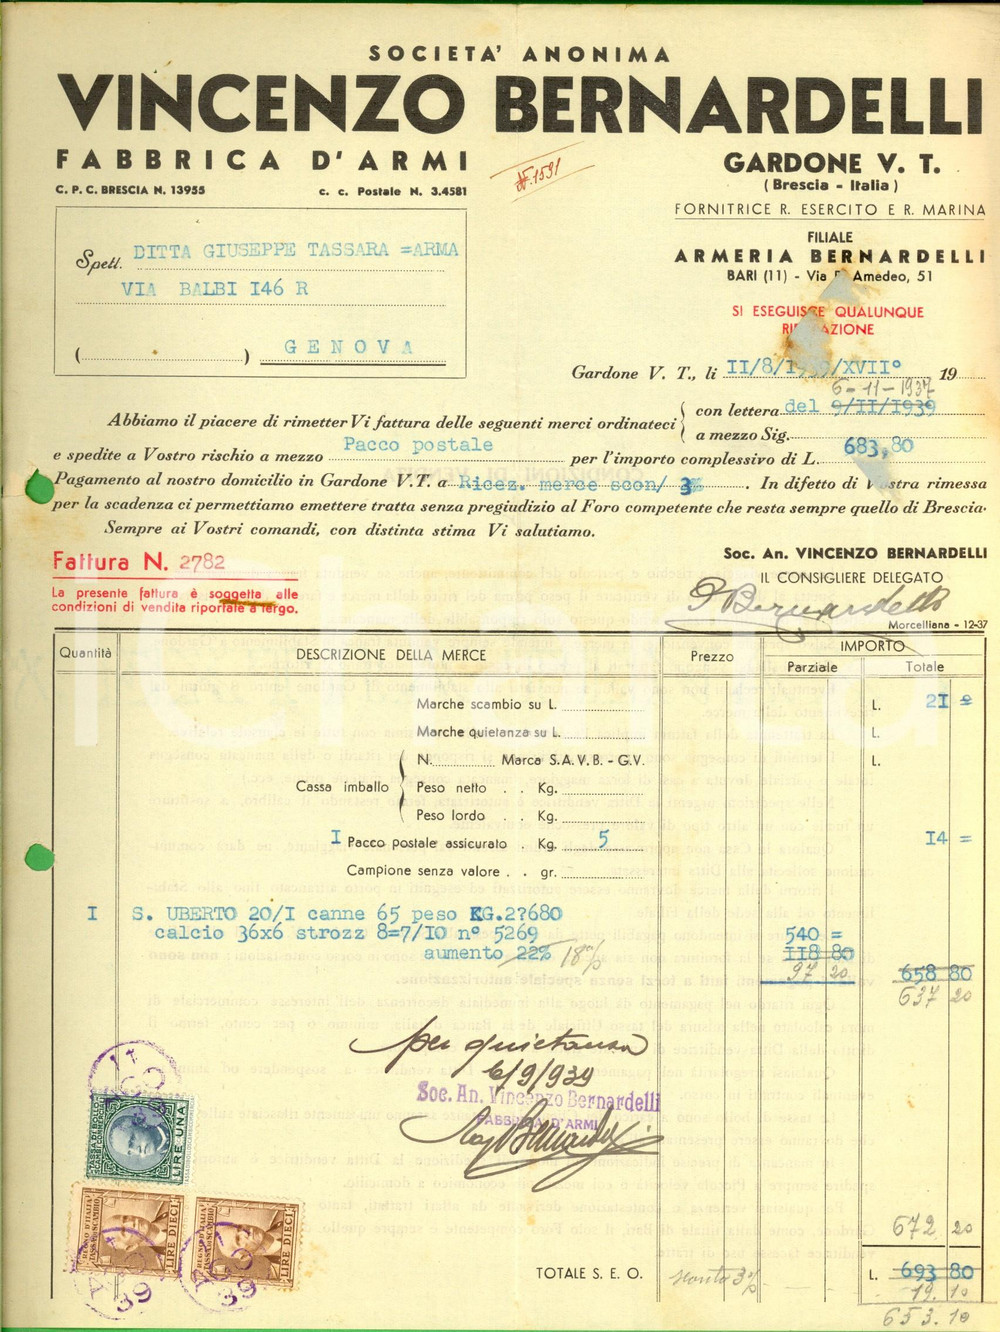 SOCIETA' ANONIMA
VINCENZO BERNARDELLI
FABBRICA D'ARMI
GARDONE V. T.
(Brescia - Italia)
C. P. C. BRESCIA N. 13955
c. c. Postale N. 3.4581
N. 1591
FORNITRICE R. ESERCITO E R. MARINA
FILIALE
ARMERIA BERNARDELLI
BARI (11) - Via Amedeo, 51
SI ESEGUISCE QUALUNQUE
Spett. DITTA GIUSEPPE TASSARA =ARMA
VIA BALBI I46 R
( ) GENOVA
Gardone V. T., li II/8/1939/XVII° 19
6-11-1937
Abbiamo il piacere di rimetter Vi fattura delle seguenti merci ordinateci
con lettera del 9/II/1939
a mezzo Sig.
e spedite a Vostro rischio a mezzo Pacco postale per l'importo complessivo di L. 683,80
Pagamento al nostro domicilio in Gardone V.T. a Ricez. merce scon/ 3% . In difetto di Vostra rimessa
per la scadenza ci permettiamo emettere tratta senza pregiudizio al Foro competente che resta sempre quello di Brescia.
Sempre ai Vostri comandi, con distinta stima Vi salutiamo.
Fattura N. 2782
La presente fattura è soggetta alle
condizioni di vendita riportate a tergo.
Soc. An. VINCENZO BERNARDELLI
IL CONSIGLIERE DELEGATO
P Bernardelli
Morcelliana - 12-37
Quantità
DESCRIZIONE DELLA MERCE
Prezzo
IMPORTO
Parziale
Totale
Marche scambio su L. L. 2I =
Marche quietanza su L. L.
Cassa imballo
N. Marca S.A.V.B. - G.V. L.
Peso netto . . Kg.
Peso lordo . . Kg.
I Pacco postale assicurato . Kg. 5 I4 =
Campione senza valore . . gr.
I S. UBERTO 20/I canne 65 peso KG.2?680
calcio 36x6 strozz 8=7/IO n° 5269 540 =
aumento 22% 18% 118 80
97 20 658 80
637 20
per quietanza
6/9/939
Soc. An. Vincenzo Bernardelli
FABBRICA D'ARMI
TASSA DI BOLLO
LIRE UNA
REGNO D'ITALIA
TASSA DI SCAMBIO
LIRE DIECI
REGNO D'ITALIA
TASSA DI SCAMBIO
LIRE DIECI
AGO
39
AGO
39
672 20
TOTALE S. E. O. sconto 3% L. 693 80
19.10
653.10